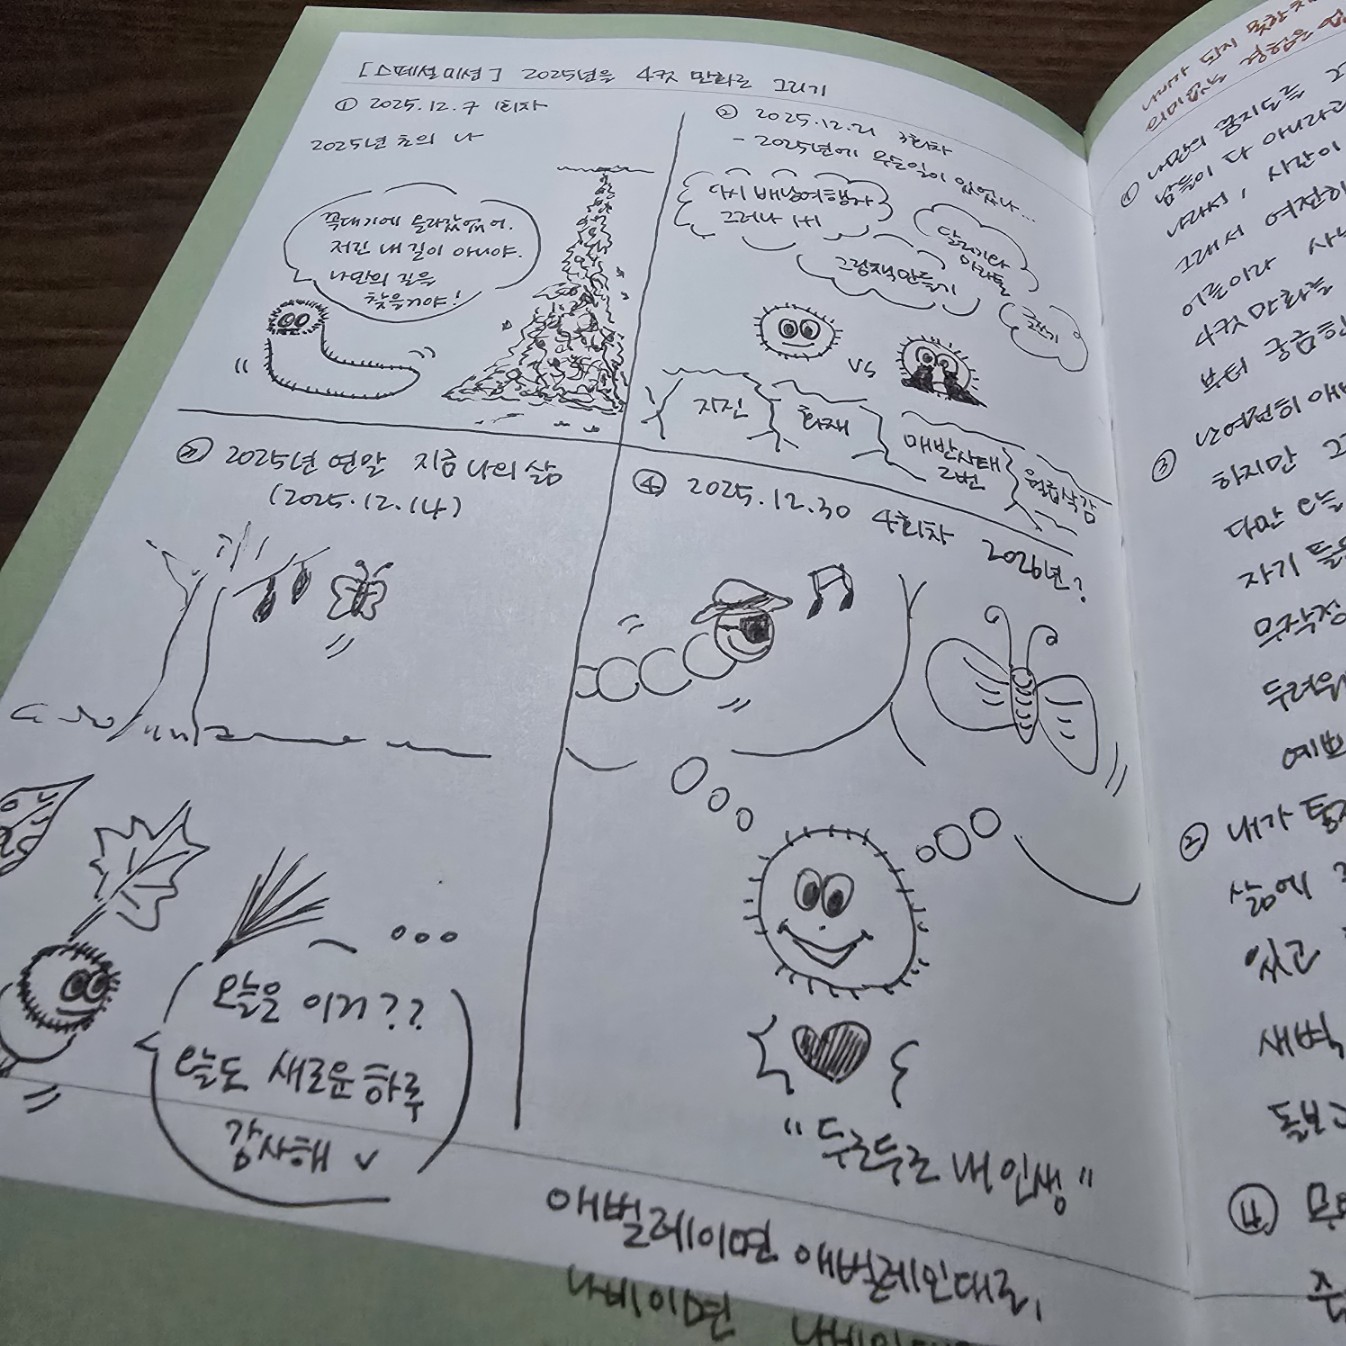 [스페셜 미션] 2025년을 4컷 만화로 그리기
① 2025.12.7 1회차
2025년 초의 나
꼭대기에 올라갔었어.
저긴 내 길이 아니야.
나만의 길을
찾을거야!
② 2025.12.21 3회차
- 2025년에 무슨일이 있었나...
다시 배낭여행자
그러나 1+1
달리기와
마라톤
그림책만들기
글쓰기
vs
지진
화재
매반사태
2번
월급삭감
③ 2025년 연말 지금 나의 삶
(2025.12.14)
오늘은 이거??
오늘도 새로운 하루
감사해 ✓
④ 2025.12.30 4회차 2026년?
"두근두근 내 인생"
애벌레이면 애벌레인대로,
나비이면
나비가 되지 못한
의미없는 경험은
① 나만의 꿈지도를
남들이 다 아니라고
나와서, 시간이
그래서 여전히
이름이라
4컷 만화를
부터 궁금한
③ 난 여전히
하지만
다만 오늘
자기
무작정
두려워
예쁘
② 내가
삶에
있고
새벽
돌보고
④